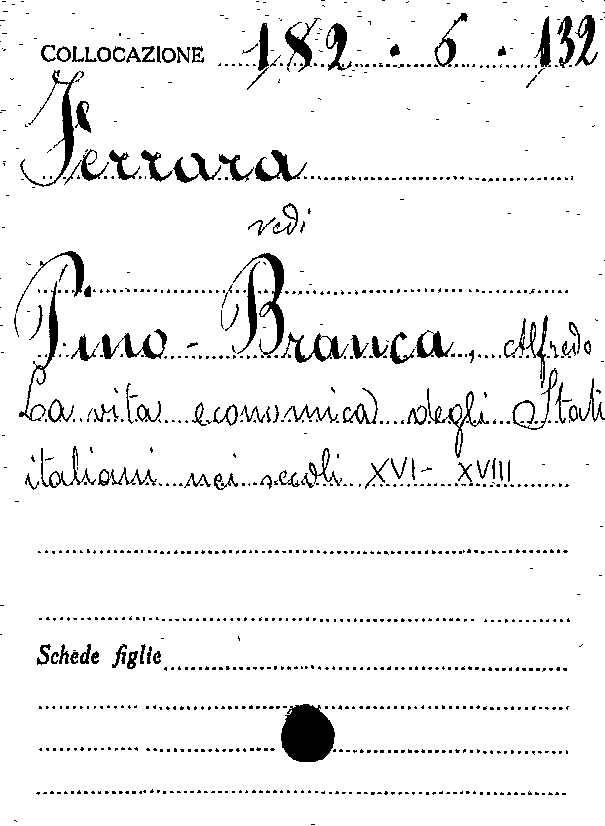 COLLOCAZIONE 182 . 6 . 132
Ferrara
vedi
Pino - Branca, Alfredo
La vita economica degli Stati
italiani nei secoli XVI - XVIII
Schede figlie